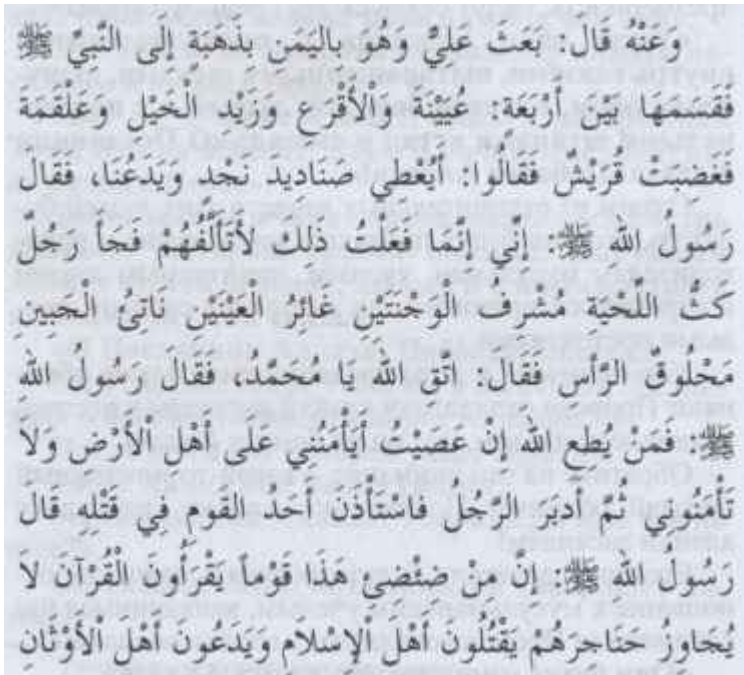 وَعَنْهُ قَالَ: بَعَثَ عَلِيٌّ وَهُوَ بِاليَمَنِ بِذَهَبَةٍ إِلَى النَّبِيِّ ﷺ
فَقَسَمَهَا بَيْنَ أَرْبَعَةٍ: عُيَيْنَةَ وَالْأَقْرَعِ وَزَيْدِ الْخَيْلِ وَعَلْقَمَةَ
فَغَضِبَتْ قُرَيْشٌ فَقَالُوا: أَيُعْطِي صَنَادِيدَ نَجْدٍ وَيَدَعُنَا، فَقَالَ
رَسُولُ اللهِ ﷺ: إِنِّي إِنَّمَا فَعَلْتُ ذَلِكَ لأَتَأَلَّفُهُمْ فَجَأَ رَجُلٌ
كَثُّ اللِّحْيَةِ مُشْرِفُ الْوَجْنَتَيْنِ غَائِرُ الْعَيْنَيْنِ نَاتِئُ الْجَبِينِ
مَحْلُوقُ الرَّأْسِ فَقَالَ: اتَّقِ اللهَ يَا مُحَمَّدُ، فَقَالَ رَسُولُ اللهِ
ﷺ: فَمَنْ يُطِعِ اللهَ إِنْ عَصَيْتُ أَيَأْمَنُنِي عَلَى أَهْلِ الْأَرْضِ وَلاَ
تَأْمَنُونِي ثُمَّ أَدْبَرَ الرَّجُلُ فَاسْتَأْذَنَ أَحَدُ القَوْمِ فِي قَتْلِهِ قَالَ
رَسُولُ اللهِ ﷺ: إِنَّ مِنْ ضِئْضِئِ هَذَا قَوْماً يَقْرَأُونَ الْقُرْآنَ لاَ
يُجَاوِزُ حَنَاجِرَهُمْ يَقْتُلُونَ أَهْلَ الْإِسْلَامِ وَيَدَعُونَ أَهْلَ الْأَوْثَانِ